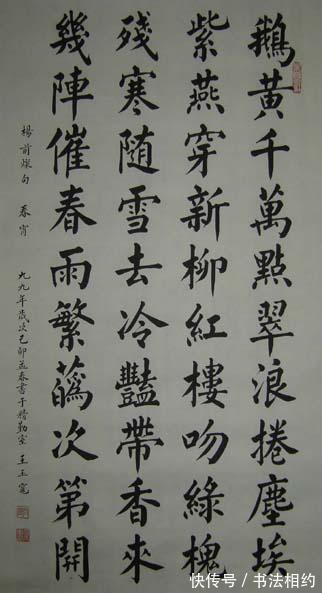 鵝黃千萬點翠浪捲塵埃
紫燕穿新柳紅樓吻綠槐
殘寒隨雪去冷豔帶香來
幾陣催春雨繁蘤次第開
楊前爍句 春宵 九九年歲次己卯孟春書于精勤室 王玉寬
快传号/书法相约